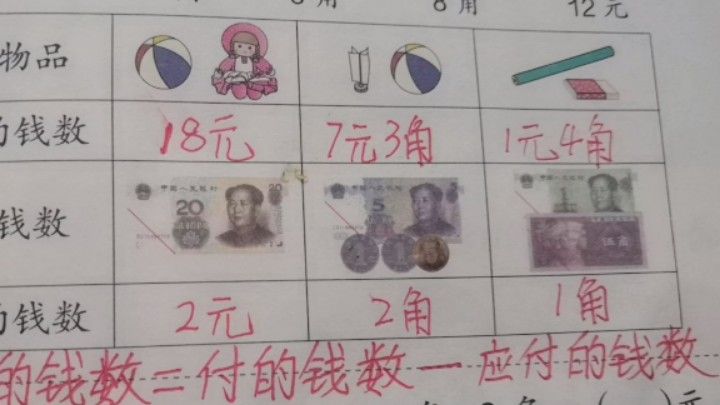 角 8角 12元
物品
的钱数 18元 7元3角 1元4角
钱数 中国人民银行 20 20 中国人民银行 5 中国人民银行 1 伍角
的钱数 2元 2角 1角
的钱数=付的钱数-应付的钱数
角 ( )元